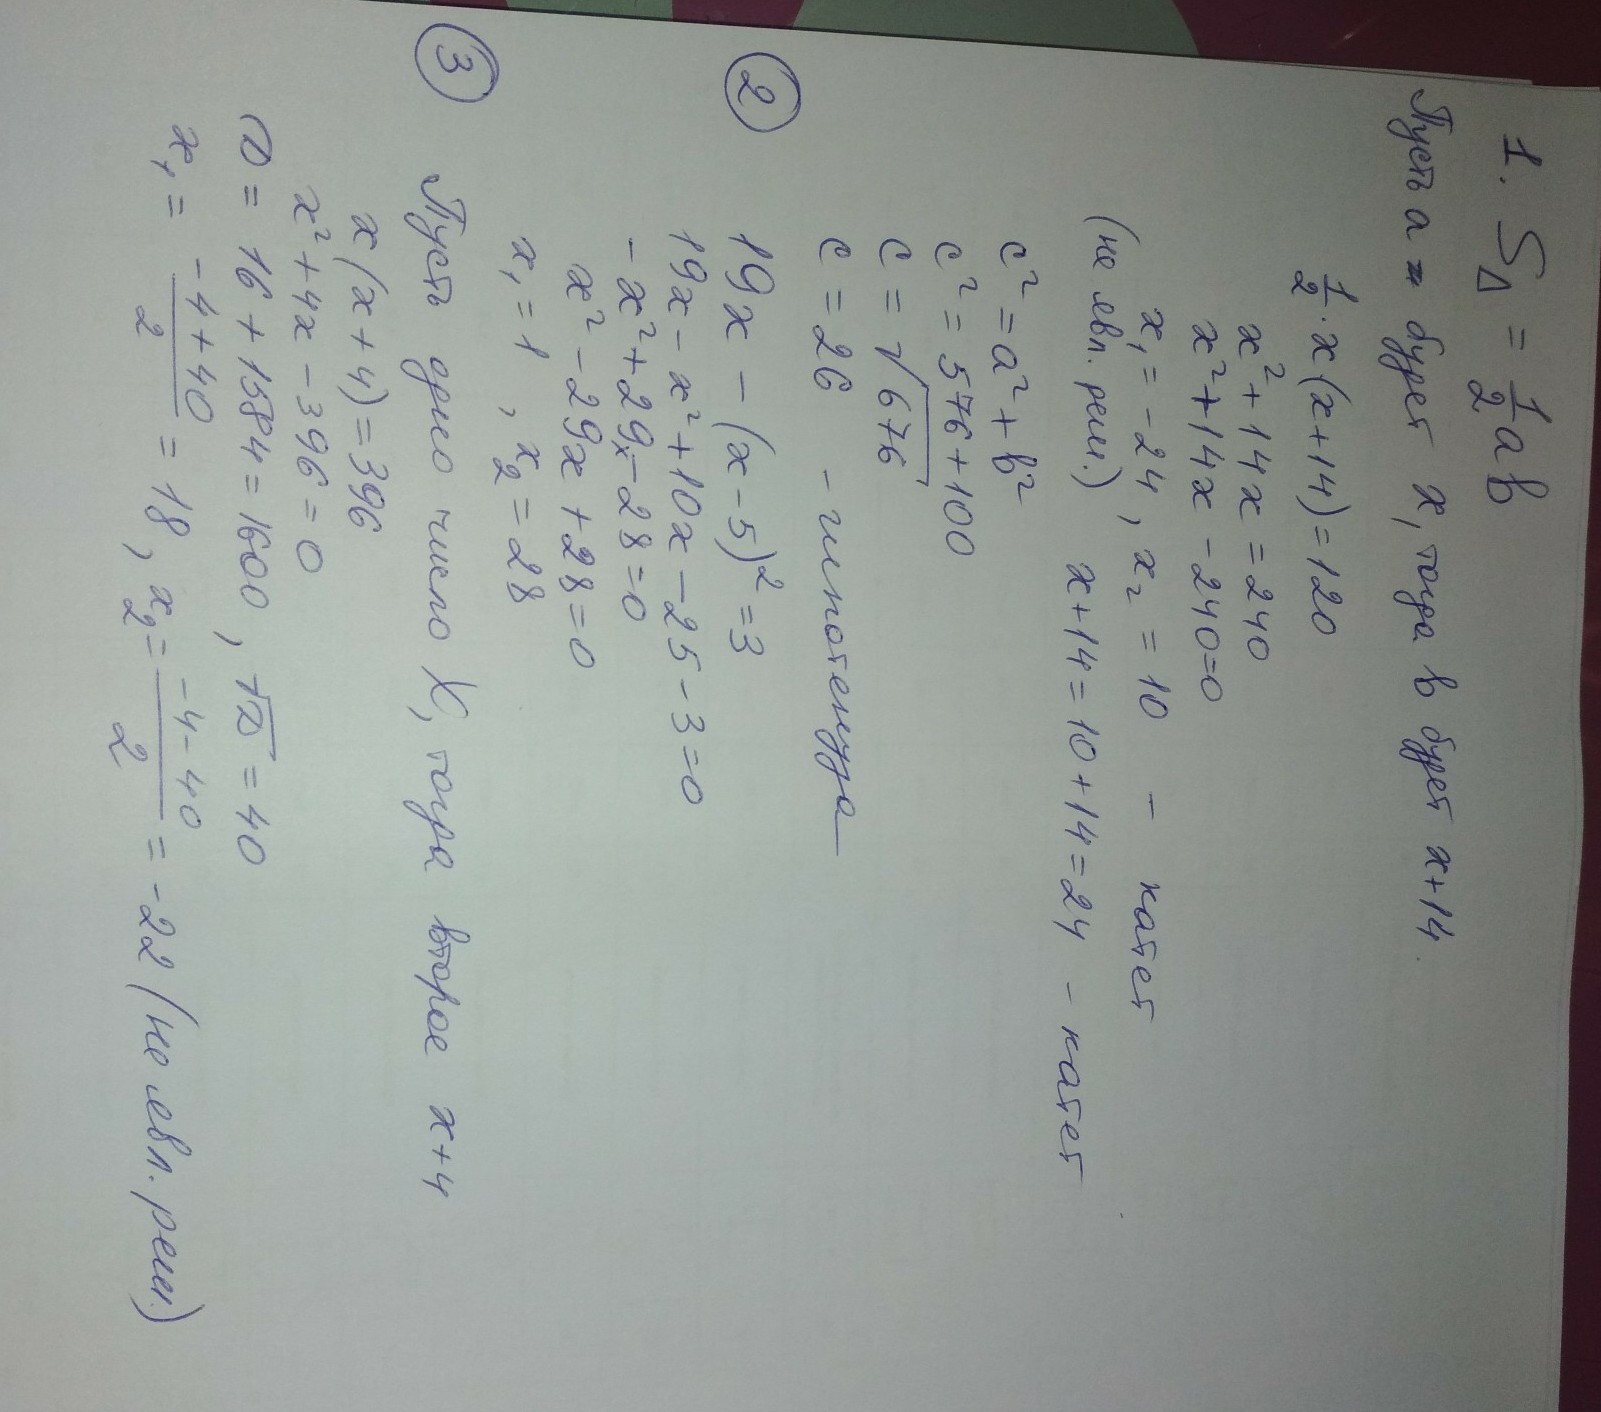 1. S△ = 1/2 ab
Пусть а будет x, тогда в будет x+14.
1/2 · x(x+14)=120
x²+14x=240
x²+14x-240=0
x₁=-24, x₂=10 - катет
(не явл. реш.) x+14=10+14=24 - катет
c²=a²+b²
c²=576+100
c=√676
c=26 - гипотенуза
② 19x-(x-5)²=3
19x-x²+10x-25-3=0
-x²+29x-28=0
x²-29x+28=0
x₁=1, x₂=28
③ Пусть одно число X, тогда второе x+4
x(x+4)=396
x²+4x-396=0
D=16+1584=1600, √D=40
x₁=(-4+40)/2=18, x₂=(-4-40)/2=-22 (не явл. реш.)